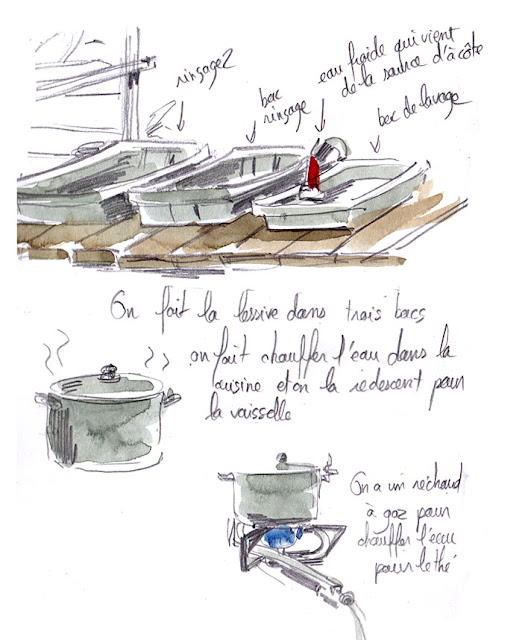 rinsage 2
bac
rinsage
eau froide qui vient
de la source d'à côte
bac de lavage
On fait la lessive dans trois bacs
on fait chauffer l'eau dans la
cuisine et on la redescent pour
la vaisselle
On a un réchaud
à gaz pour
chauffer l'eau
pour le thé